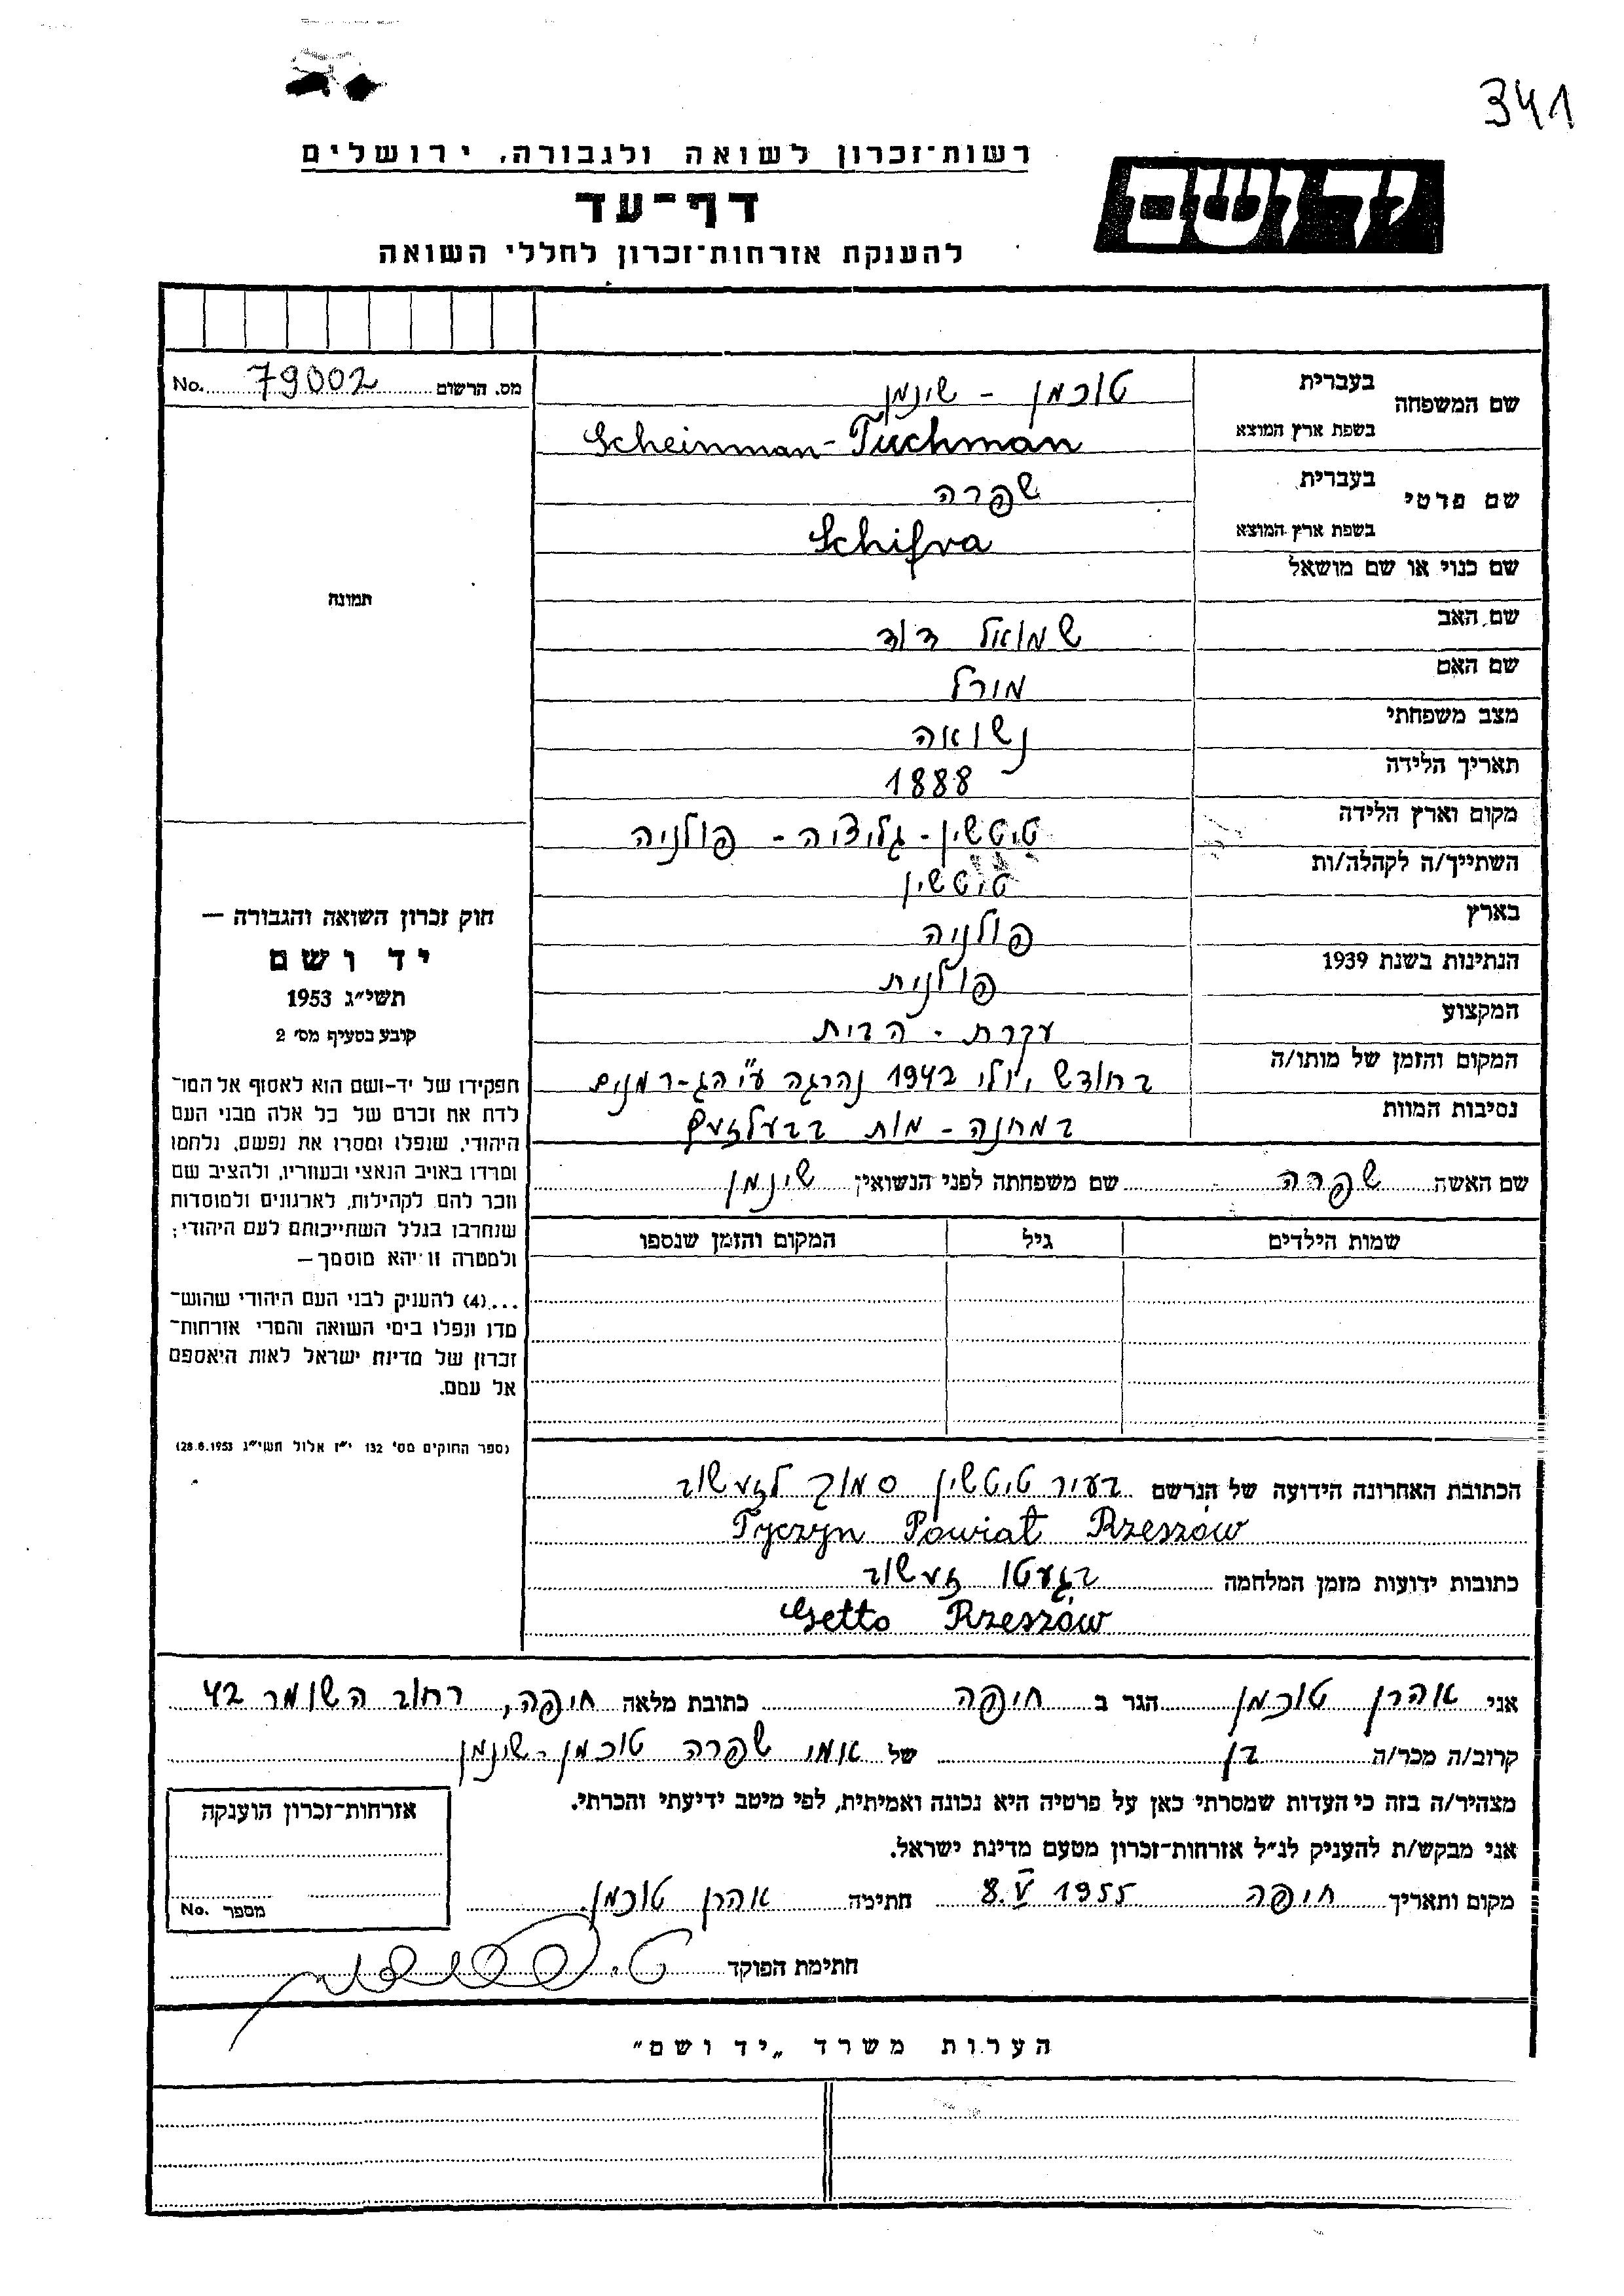 341
רשות־זכרון לשואה ולגבורה, ירושלים
יד ושם
דף־עד
להענקת אזרחות־זכרון לחללי השואה
מס. הרשום 79002 No.
שם המשפחה בעברית טוכמן - שינמן
בשפת ארץ המוצא Scheinman-Tuchman
שם פרטי בעברית שפרה
בשפת ארץ המוצא Schifra
שם כנוי או שם מושאל
שם האב שמואל דוד
שם האם
מצב משפחתי נשואה
תאריך הלידה 1888
מקום וארץ הלידה טיטשין - גליציה - פולניה
השתייך/ה לקהלה/ות טיטשין
בארץ פולניה
הנתינות בשנת 1939 פולנית
המקצוע עקרת - הבית
המקום והזמן של מותו/ה בחודש יולי 1942 נהרגה ע"י הג-רמנים
נסיבות המוות במחנה - מות בבעלזעץ
שם האשה שפרה שם משפחתה לפני הנשואין שינמן
שמות הילדים גיל המקום והזמן שנספו
תמונה
חוק זכרון השואה והגבורה —
יד ושם
תשי״ג 1953
קובע בסעיף מס׳ 2
תפקידו של יד-ושם הוא לאסוף אל המו־
לדת את זכרם של כל אלה מבני העם
היהודי, שנפלו ומסרו את נפשם, נלחמו
ומרדו באויב הנאצי ובעוזריו, ולהציב שם
וזכר להם לקהילות, לארגונים ולמוסדות
שנחרבו בגלל השתייכותם לעם היהודי;
ולמטרה זו יהא מוסמך —
...(4) להעניק לבני העם היהודי שהוש־
מדו ונפלו בימי השואה והמרי אזרחות־
זכרון של מדינת ישראל לאות היאספם
אל עמם.
(ספר החוקים מס׳ 132 י״ז אלול תשי״ג 28.8.1953)
הכתובת האחרונה הידועה של הנרשם בעיר טיטשין סמוך לזעשוב
Tyczyn Powiat Rzeszów
כתובות ידועות מזמן המלחמה בגעטו זעשוב
Getto Rzeszów
אני אהרן טוכמן הגר ב חיפה כתובת מלאה חיפה, רחוב השומר 42
קרוב/ה מכר/ה בן של אמי שפרה טוכמן-שינמן
מצהיר/ה בזה כי העדות שמסרתי כאן על פרטיה היא נכונה ואמיתית, לפי מיטב ידיעתי והכרתי.
אני מבקש/ת להעניק לנ״ל אזרחות־זכרון מטעם מדינת ישראל.
מקום ותאריך חיפה 8.V 1955 חתימה אהרן טוכמן.
אזרחות־זכרון הוענקה
מספר No.
חתימת הפוקד
הערות משרד „יד ושם״